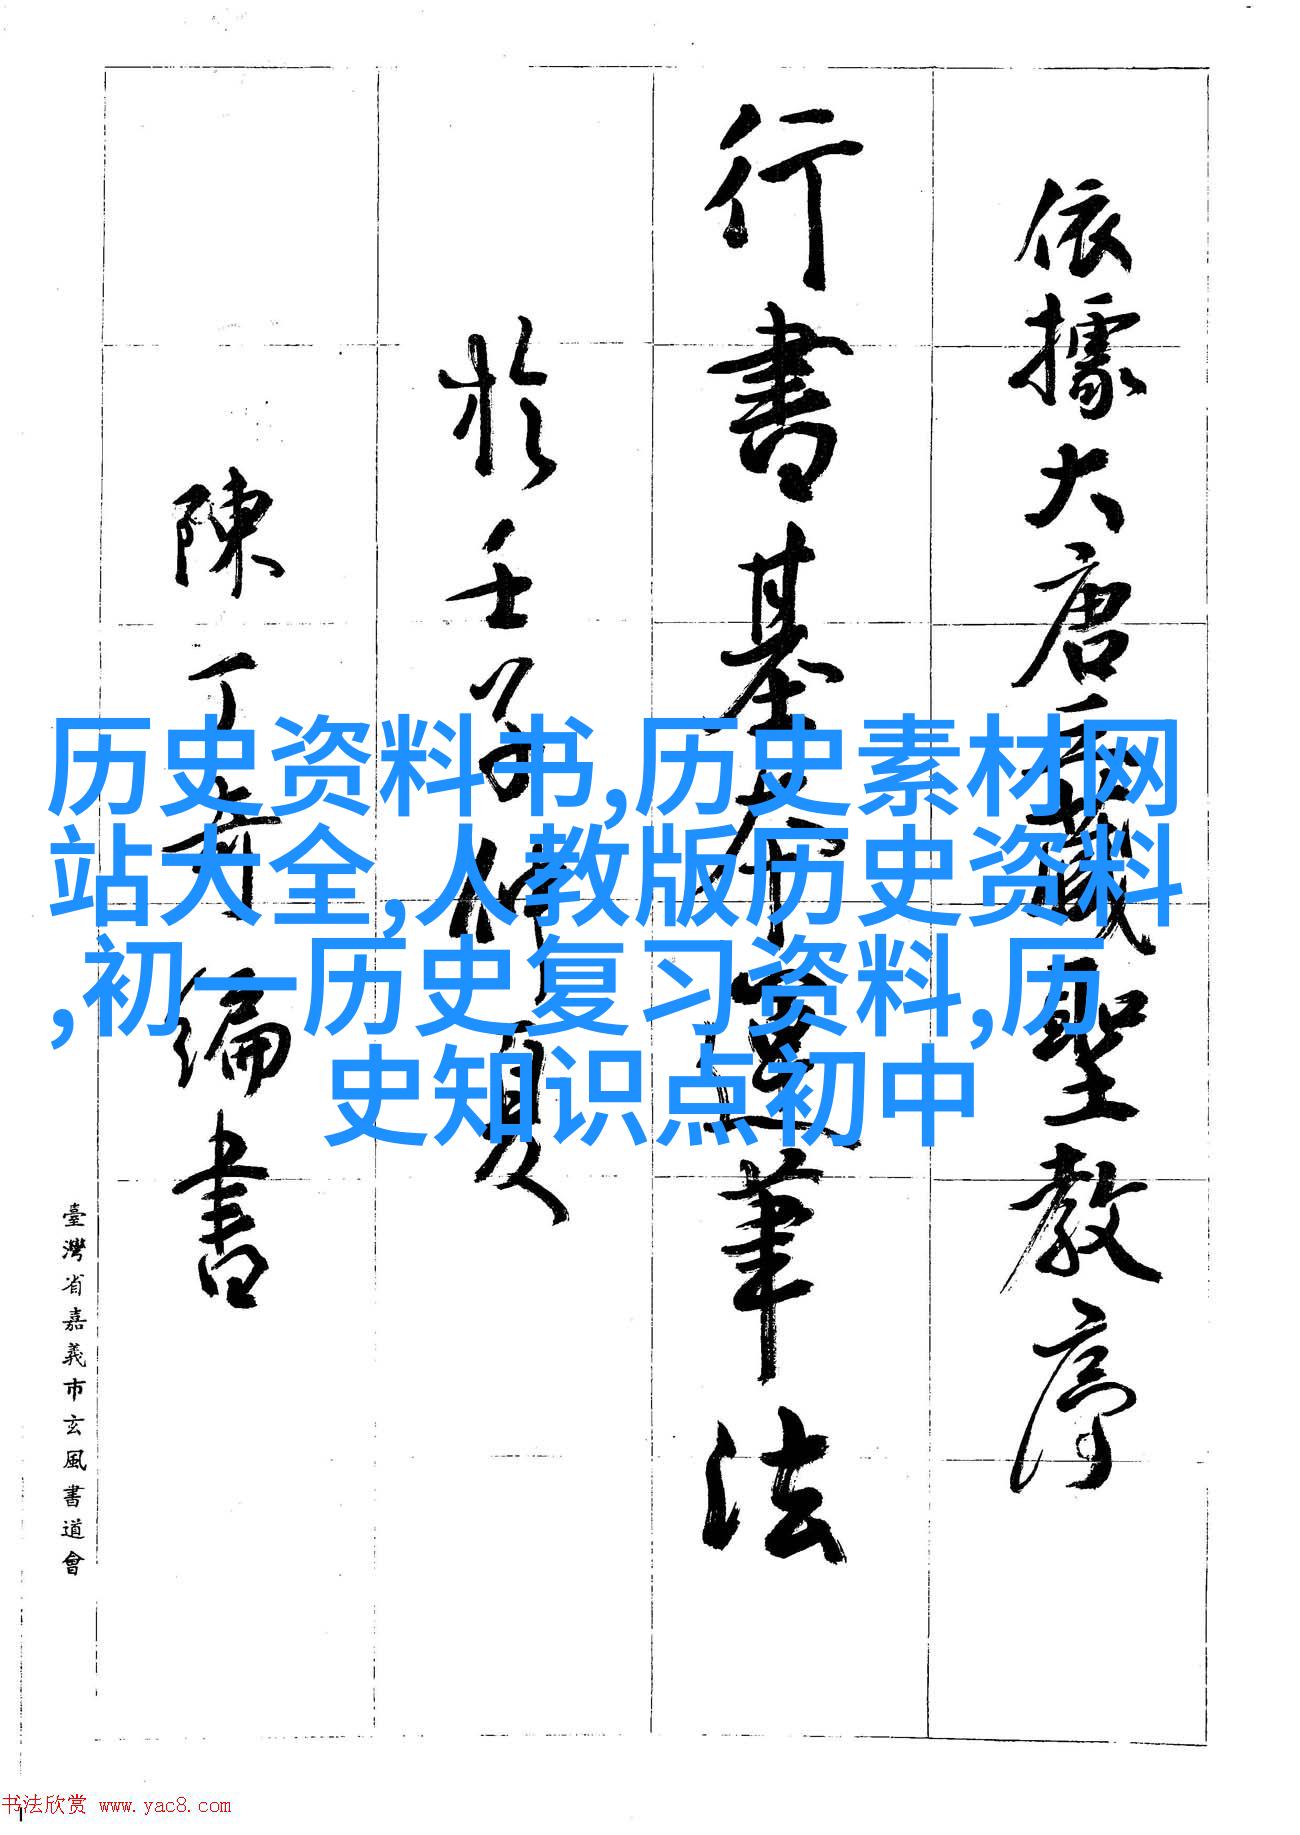 依據大唐三藏聖教序
行書基本運筆法
於壬子仲夏
陳丁奇編書
臺灣省嘉義市玄風書道會
历史资料书,历史素材网
站大全,人教版历史资料
,初一历史复习资料,历
史知识点初中
书法欣赏 www.yac8.com